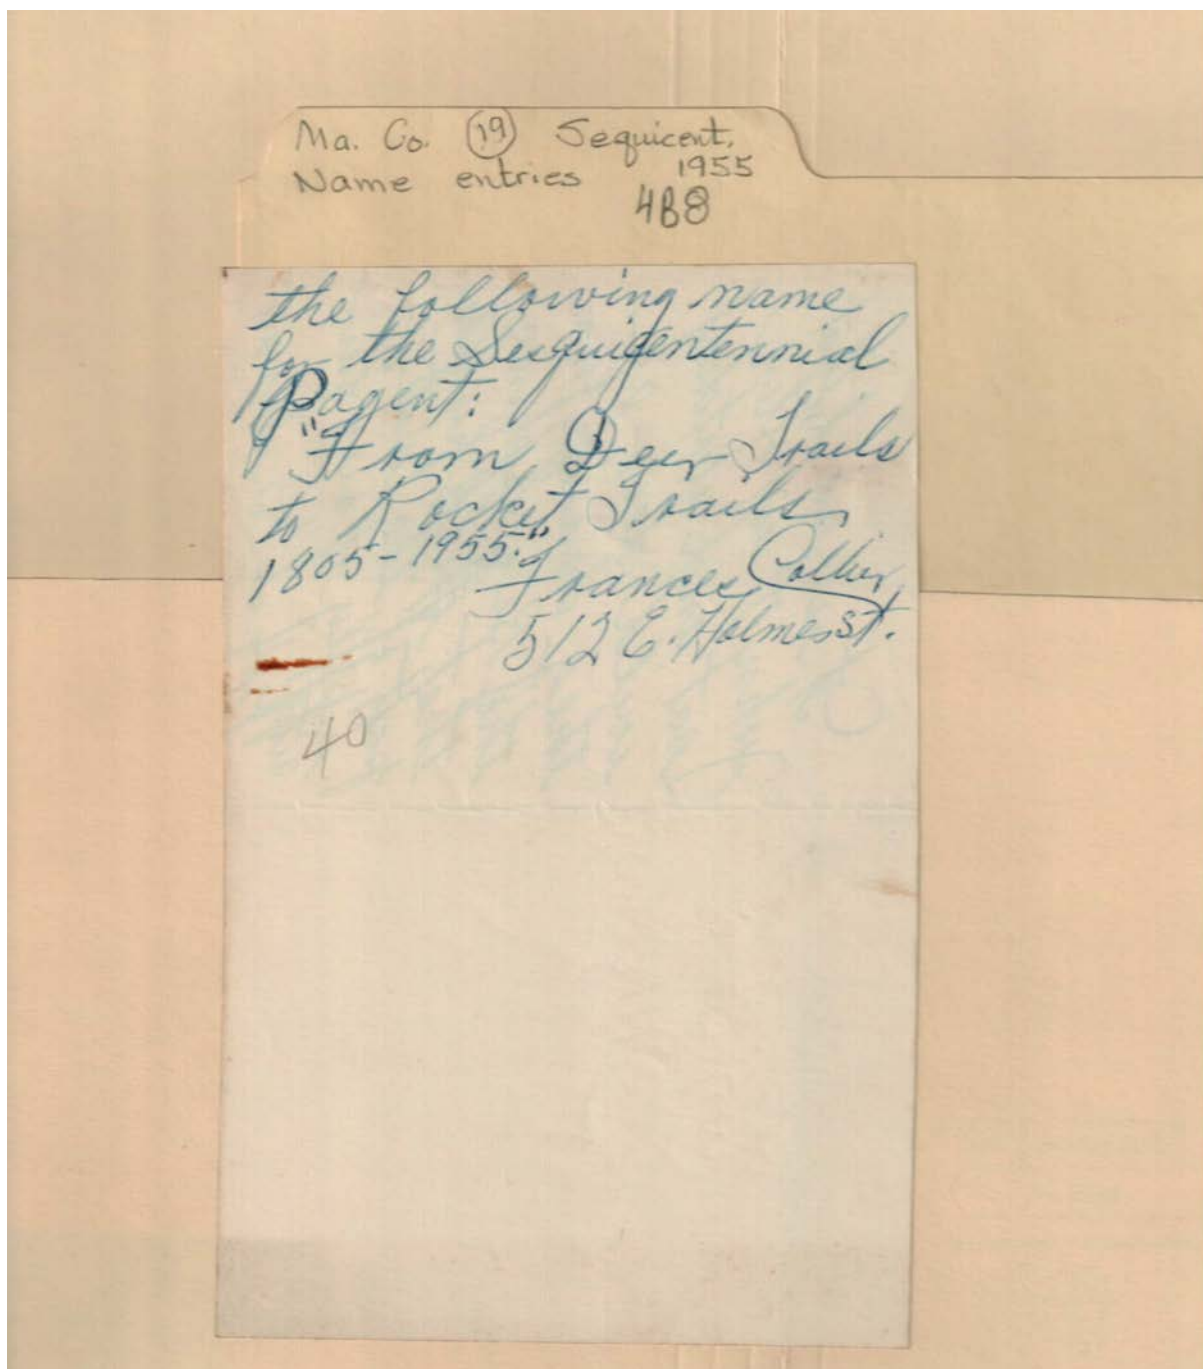 Ma. Co. 19 Sequicent.
1955
Name entries
4B8
the following name
for the Sesquicentennial
Pagent:
"From Deer Trails
to Rocket Trails
1805-1955."
Frances Collier
512 E. Holmes St.
40